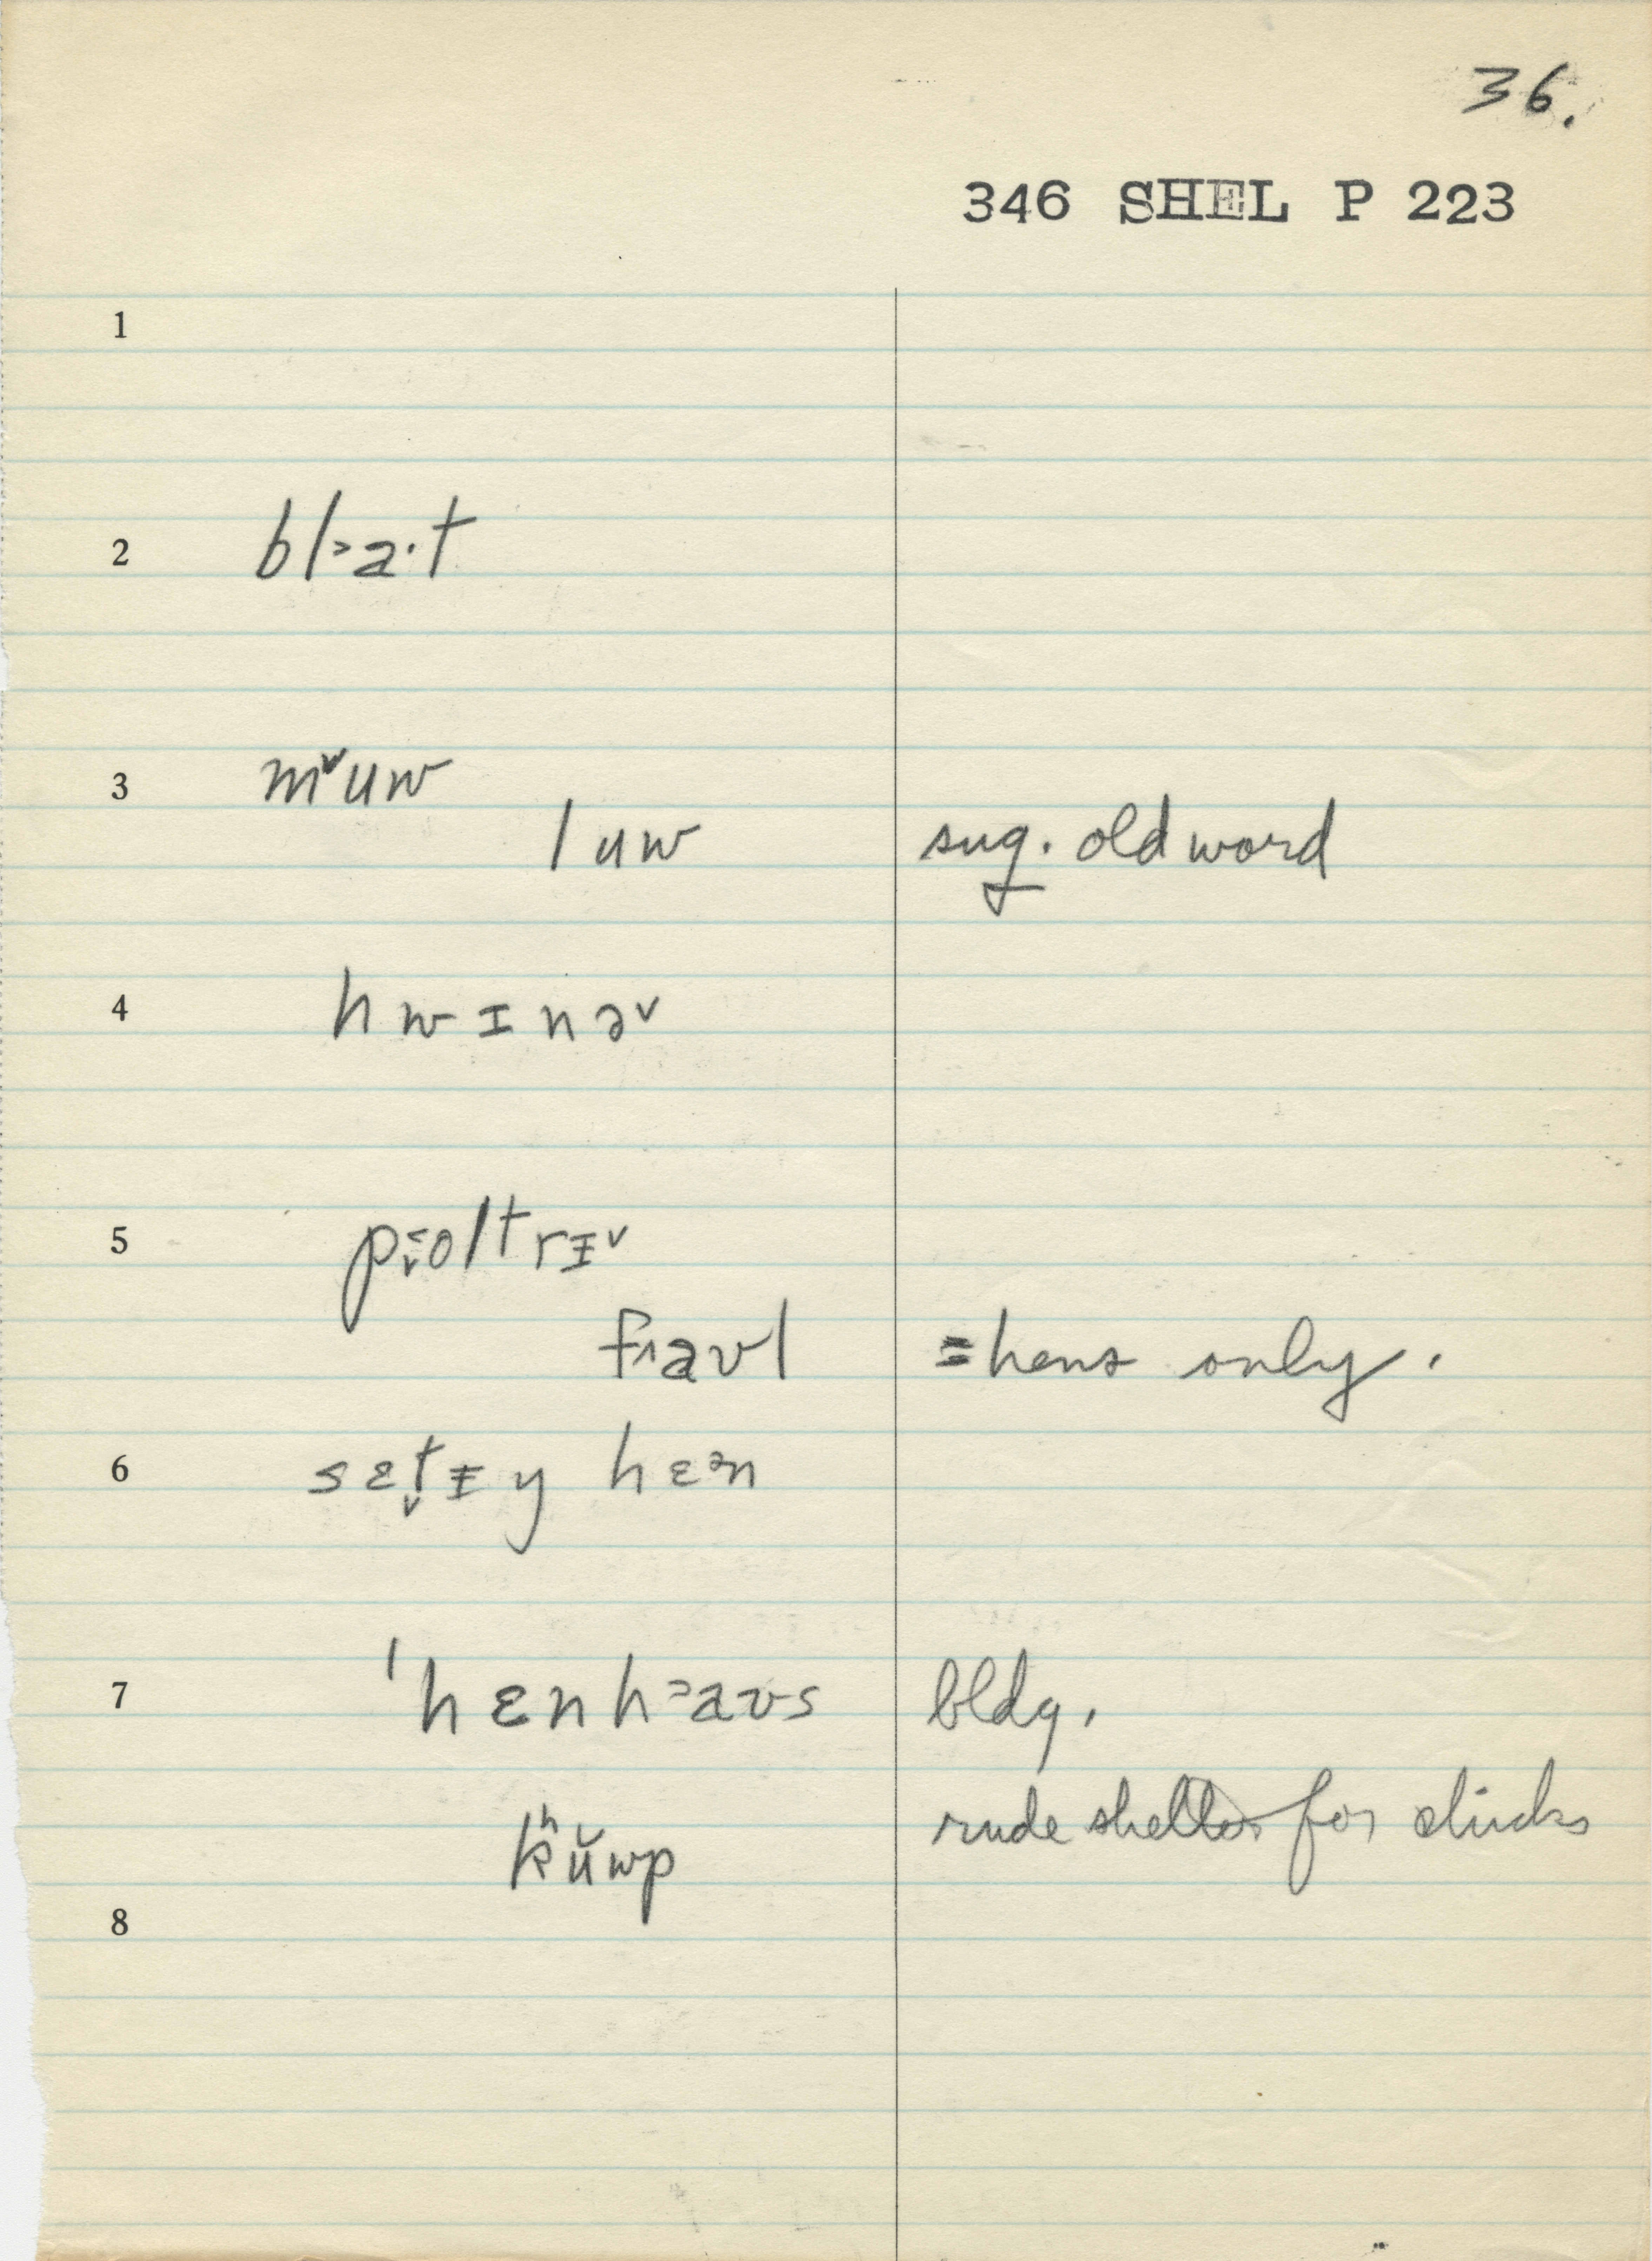 36.
346 SHEL P 223
1
2 bl˃a·t
3 mᵛuw
luw sug. old word
4 hwɪnə˅
5 p̬o˂ltrɪ˅
f˄aʊl = hens only.
6 sɛt̬ɪy hɛᵊn
7 ˈhɛnh˃aʊs bldg.
kʰŭwp rude shelter for chicks
8